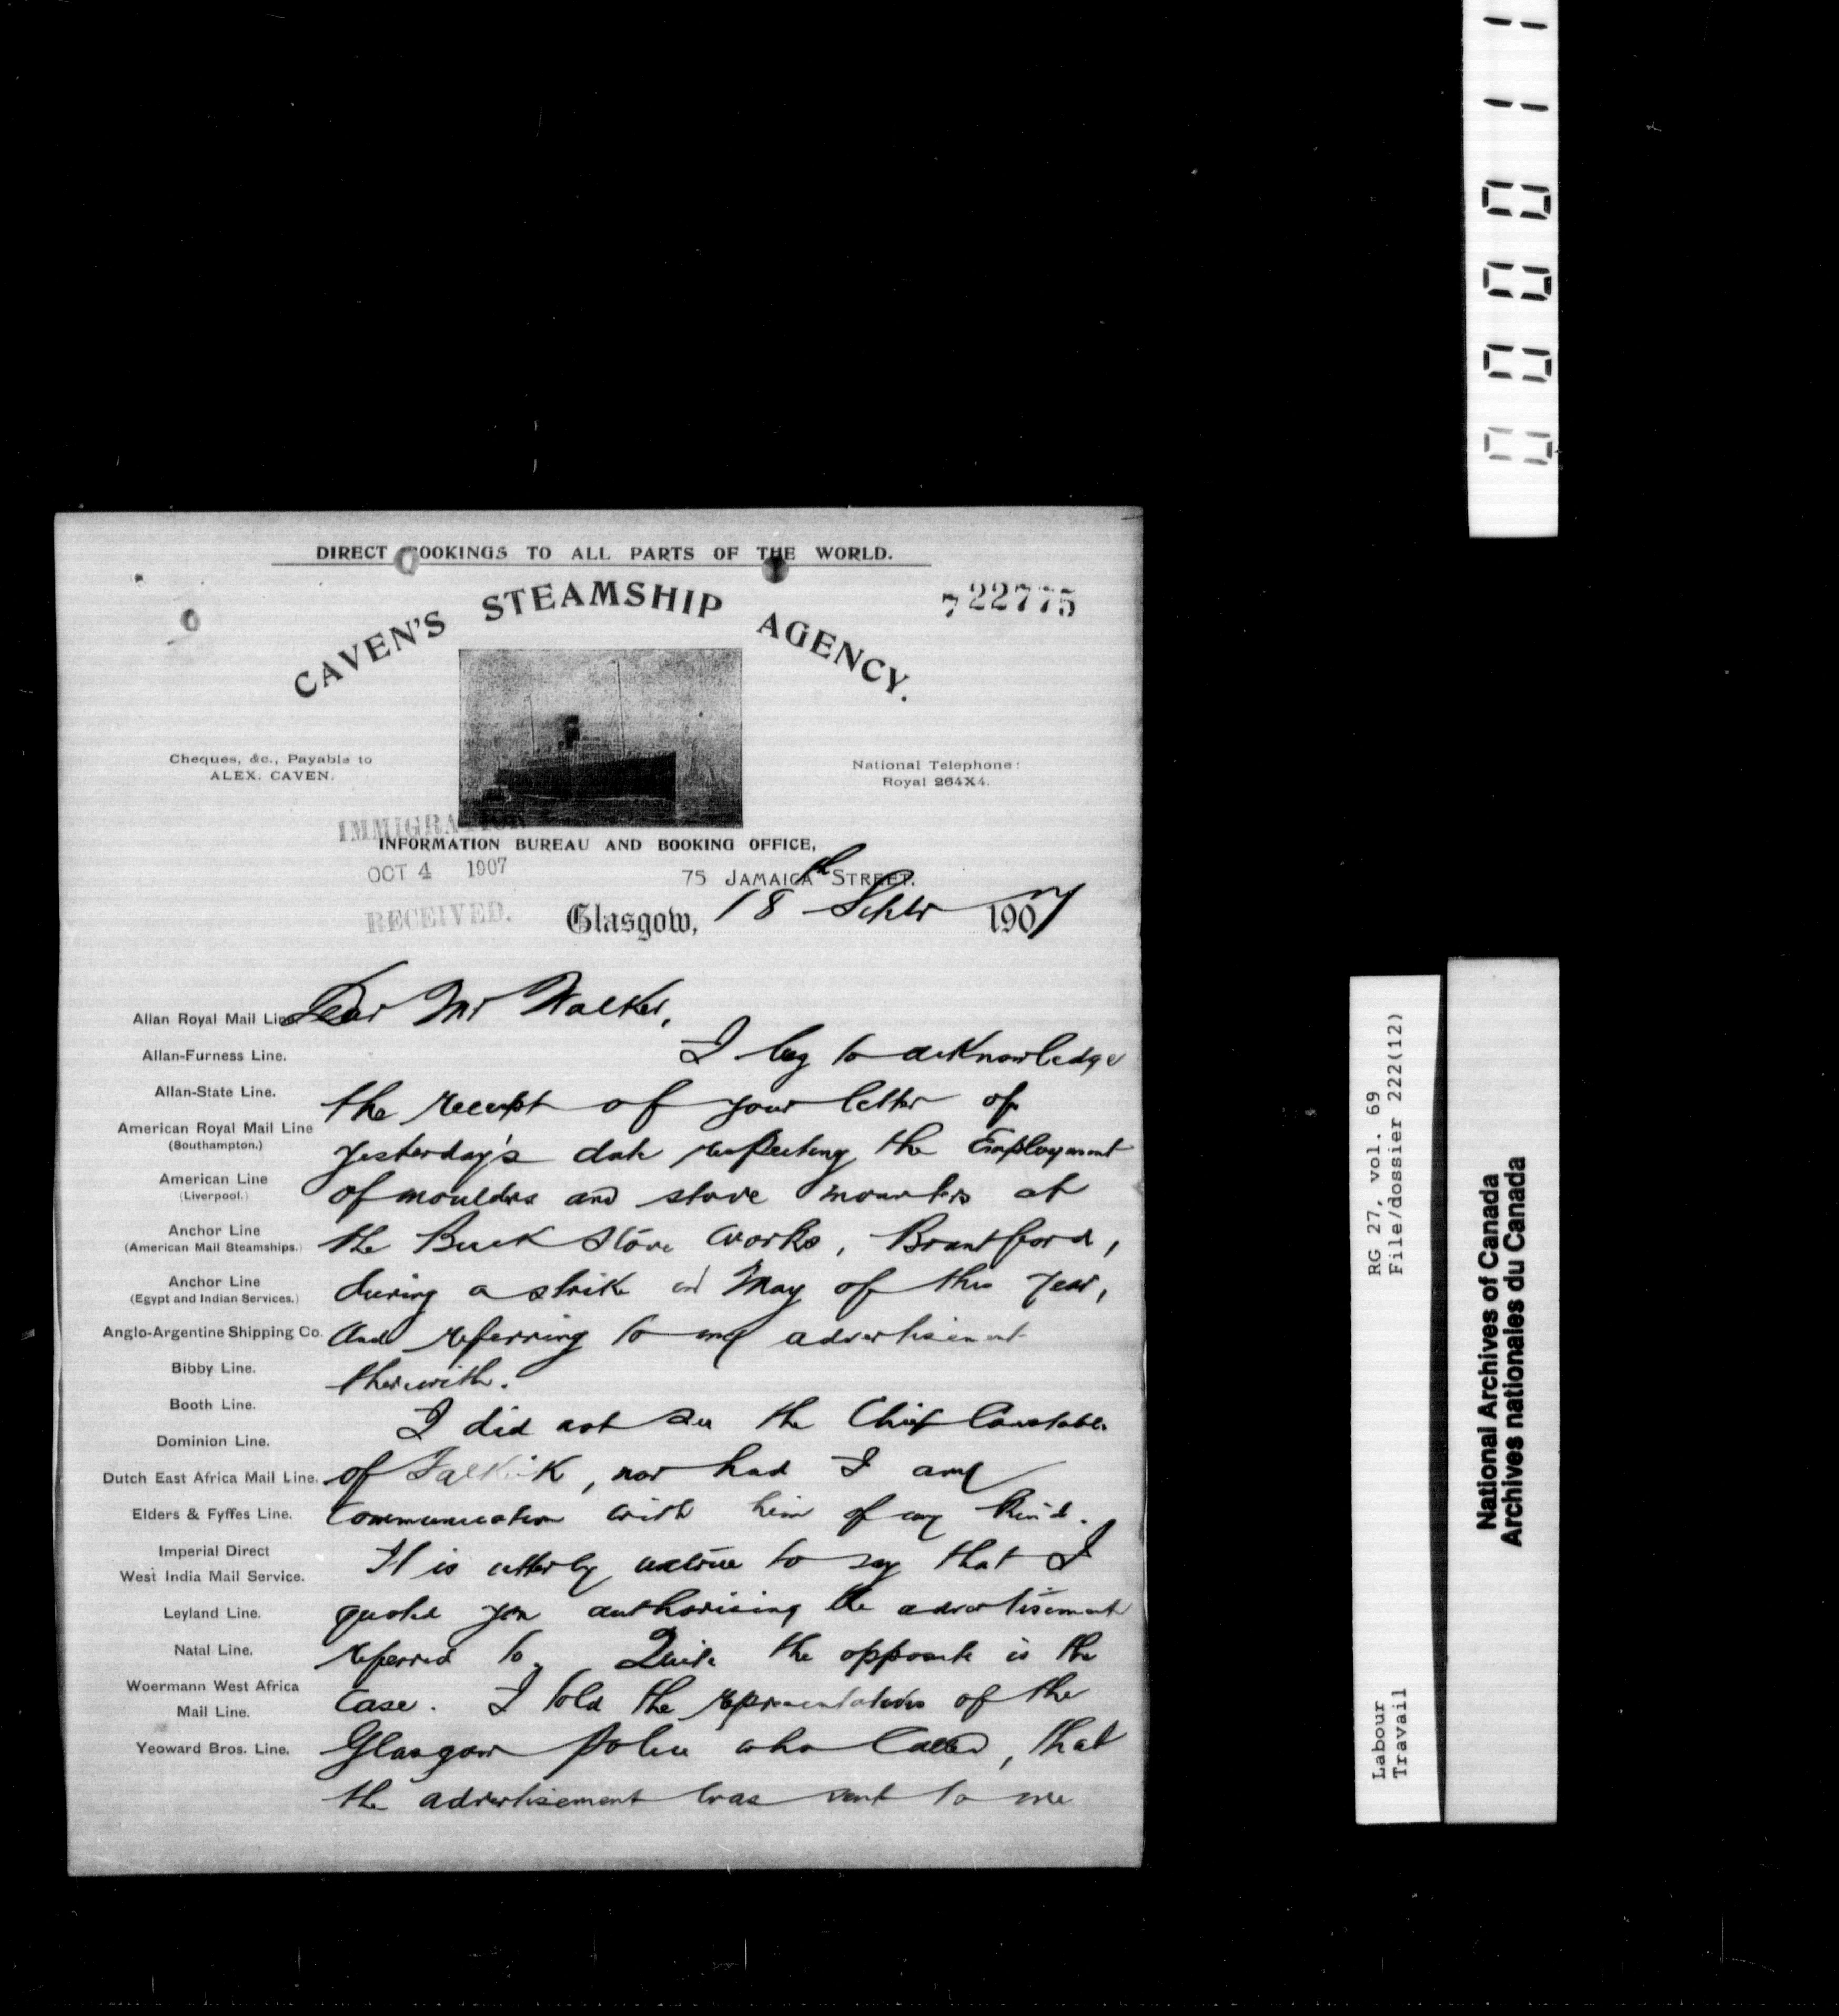 DIRECT BOOKINGS TO ALL PARTS OF THE WORLD.
722775
CAVEN'S STEAMSHIP AGENCY.
Cheques, &c., Payable to
ALEX. CAVEN.
National Telephone:
Royal 264X4.
IMMIGRATION
INFORMATION BUREAU AND BOOKING OFFICE,
OCT 4 1907
75 JAMAICA STREET.
RECEIVED.
Glasgow, 18th Septr 1907
Dear Mr Walker,
I beg to acknowledge
the receipt of your letter of
yesterday's date respecting the Employment
of moulders and stove mounters at
the Buck Stove Works, Brantford,
during a strike in May of this year,
and referring to my advertisement
therewith.
I did not see the Chief Constable
of Falkirk, nor had I any
communication with him of any kind.
It is utterly untrue to say that I
quoted you authorising the advertisement
referred to. Quite the opposite is the
case. I told the representatives of the
Glasgow police who called, that
the advertisement was sent to me
Allan Royal Mail Line.
Allan-Furness Line.
Allan-State Line.
American Royal Mail Line
(Southampton.)
American Line
(Liverpool.)
Anchor Line
(American Mail Steamships.)
Anchor Line
(Egypt and Indian Services.)
Anglo-Argentine Shipping Co.
Bibby Line.
Booth Line.
Dominion Line.
Dutch East Africa Mail Line.
Elders & Fyffes Line.
Imperial Direct
West India Mail Service.
Leyland Line.
Natal Line.
Woermann West Africa
Mail Line.
Yeoward Bros. Line.
RG 27, vol. 69
File/dossier 222(12)
Labour
Travail
National Archives of Canada
Archives nationales du Canada